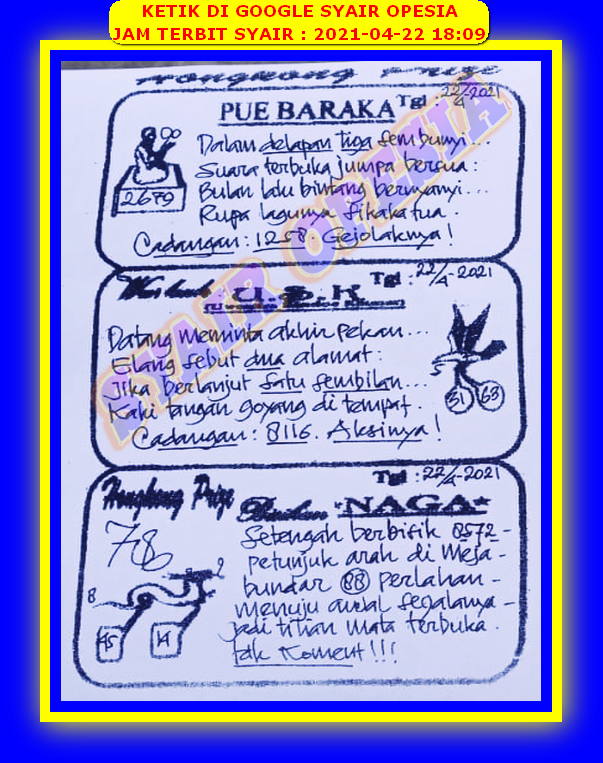 KETIK DI GOOGLE SYAIR OPESIA
JAM TERBIT SYAIR : 2021-04-22 18:09
Hongkong Prize
PUE BARAKA Tgl : 22/4-2021
Dalam delapan tiga sembunyi...
Suara terbuka jumpa bersua :
Bulan lalu bintang bernyanyi...
Rupa lagunya sikakatua .
2679
Cadangan : 1258. Gejolaknya !
SYAIR OPESIA
U.S.K Tgl : 22/4-2021
Datang meminta akhir pekan...
Elang sebut dua alamat :
Jika berlanjut satu sembilan...
Kaki tangan goyang di tempat .
5
51 63
Cadangan : 8116. Aksinya !
Tgl : 22/4-2021
Hongkong Prize
*NAGA*
78
Setengah berbisik 0572 -
petunjuk arah di meja -
bundar 88 perlahan -
menuju awal segalanya -
jadi titian mata terbuka .
tdk Koment !!!
8
45 14